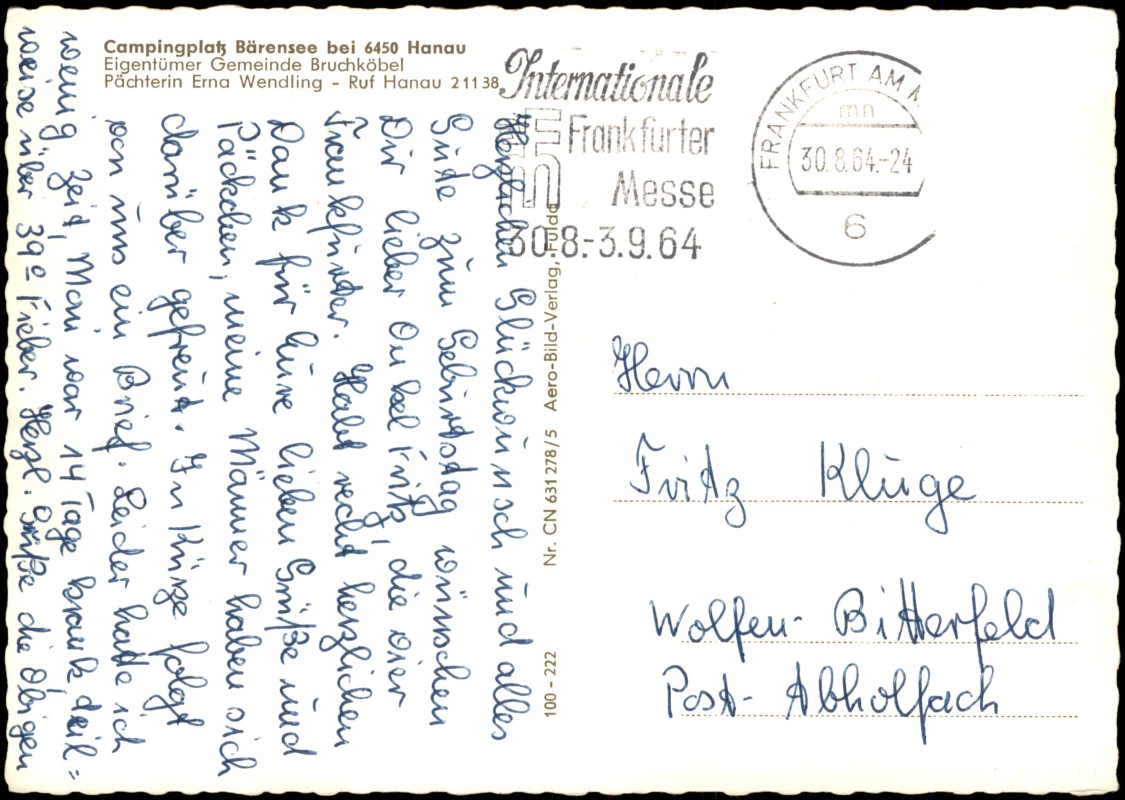 Campingplatz Bärensee bei 6450 Hanau
Eigentümer Gemeinde Bruchköbel
Pächterin Erna Wendling - Ruf Hanau 21138
Internationale
Frankfurter
Messe
30.8.-3.9.64
FRANKFURT AM M
mn
30.8.64.-24
6
Herzlichen Glückwunsch und alles
Gute zum Geburtstag wünschen
Dir lieber Onkel Fritz, die vier
Frankfurter. Habt recht herzlichen
Dank für Eure lieben Grüße und
Päckchen, meine Männer haben sich
darüber gefreut. In Kürze folgt
von uns ein Brief. Leider hatte ich
wenig Zeit, Mani war 14 Tage krank teil=
weise über 39° Fieber. Herzl. Grüße die Obigen
Nr. CN 631278/5 Aero-Bild-Verlag, Fulda
100 - 222
Herrn
Fritz Kluge
Wolfen-Bitterfeld
Post-Abholfach